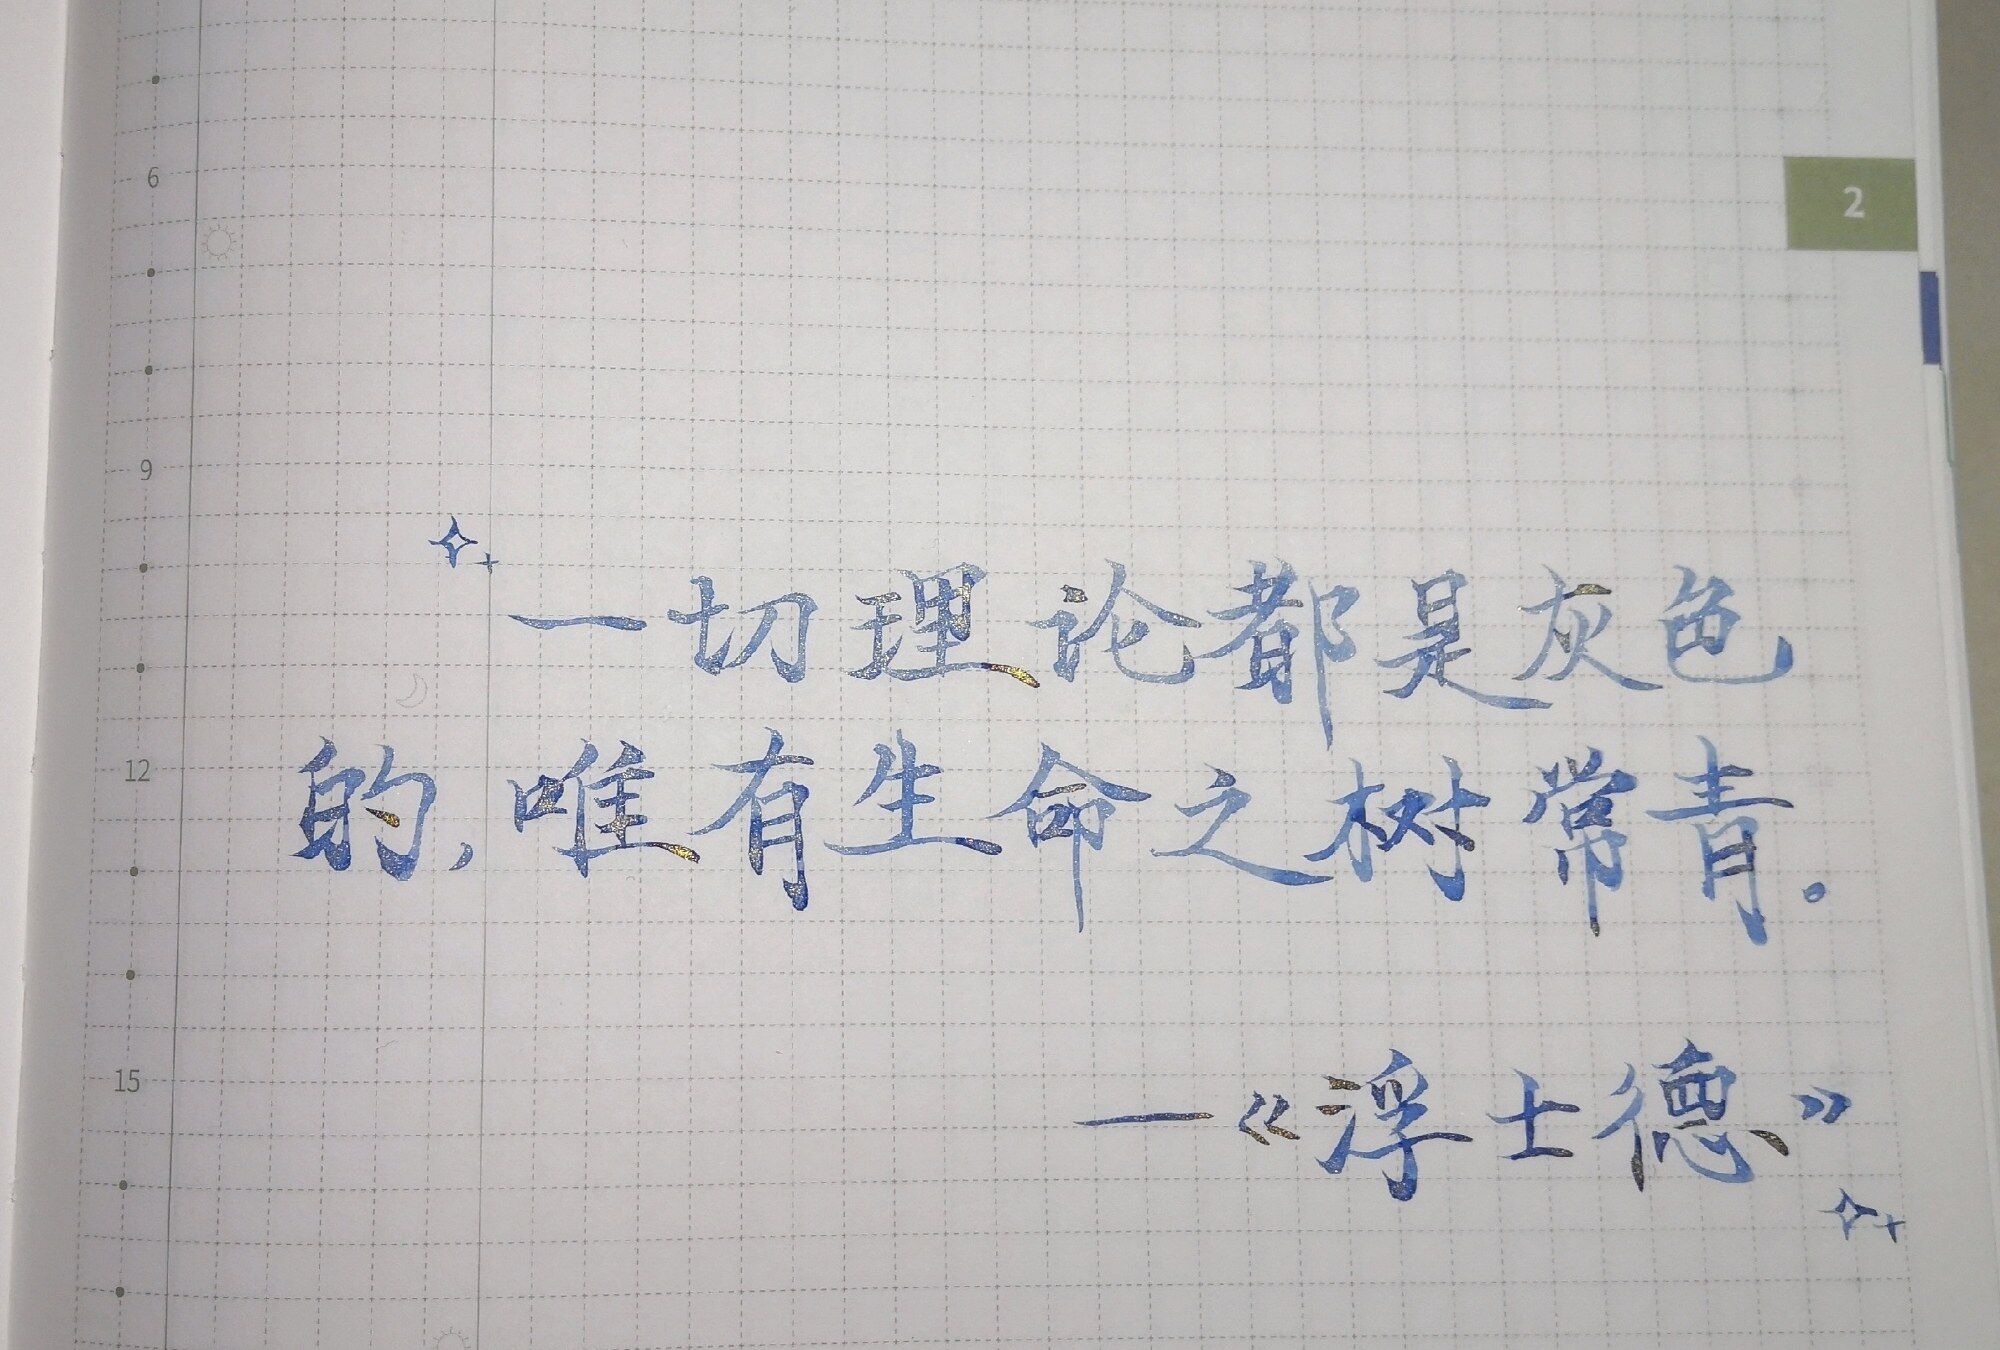 6
2
9
一切理论都是灰色
的，唯有生命之树常青。
12
15
—《浮士德》